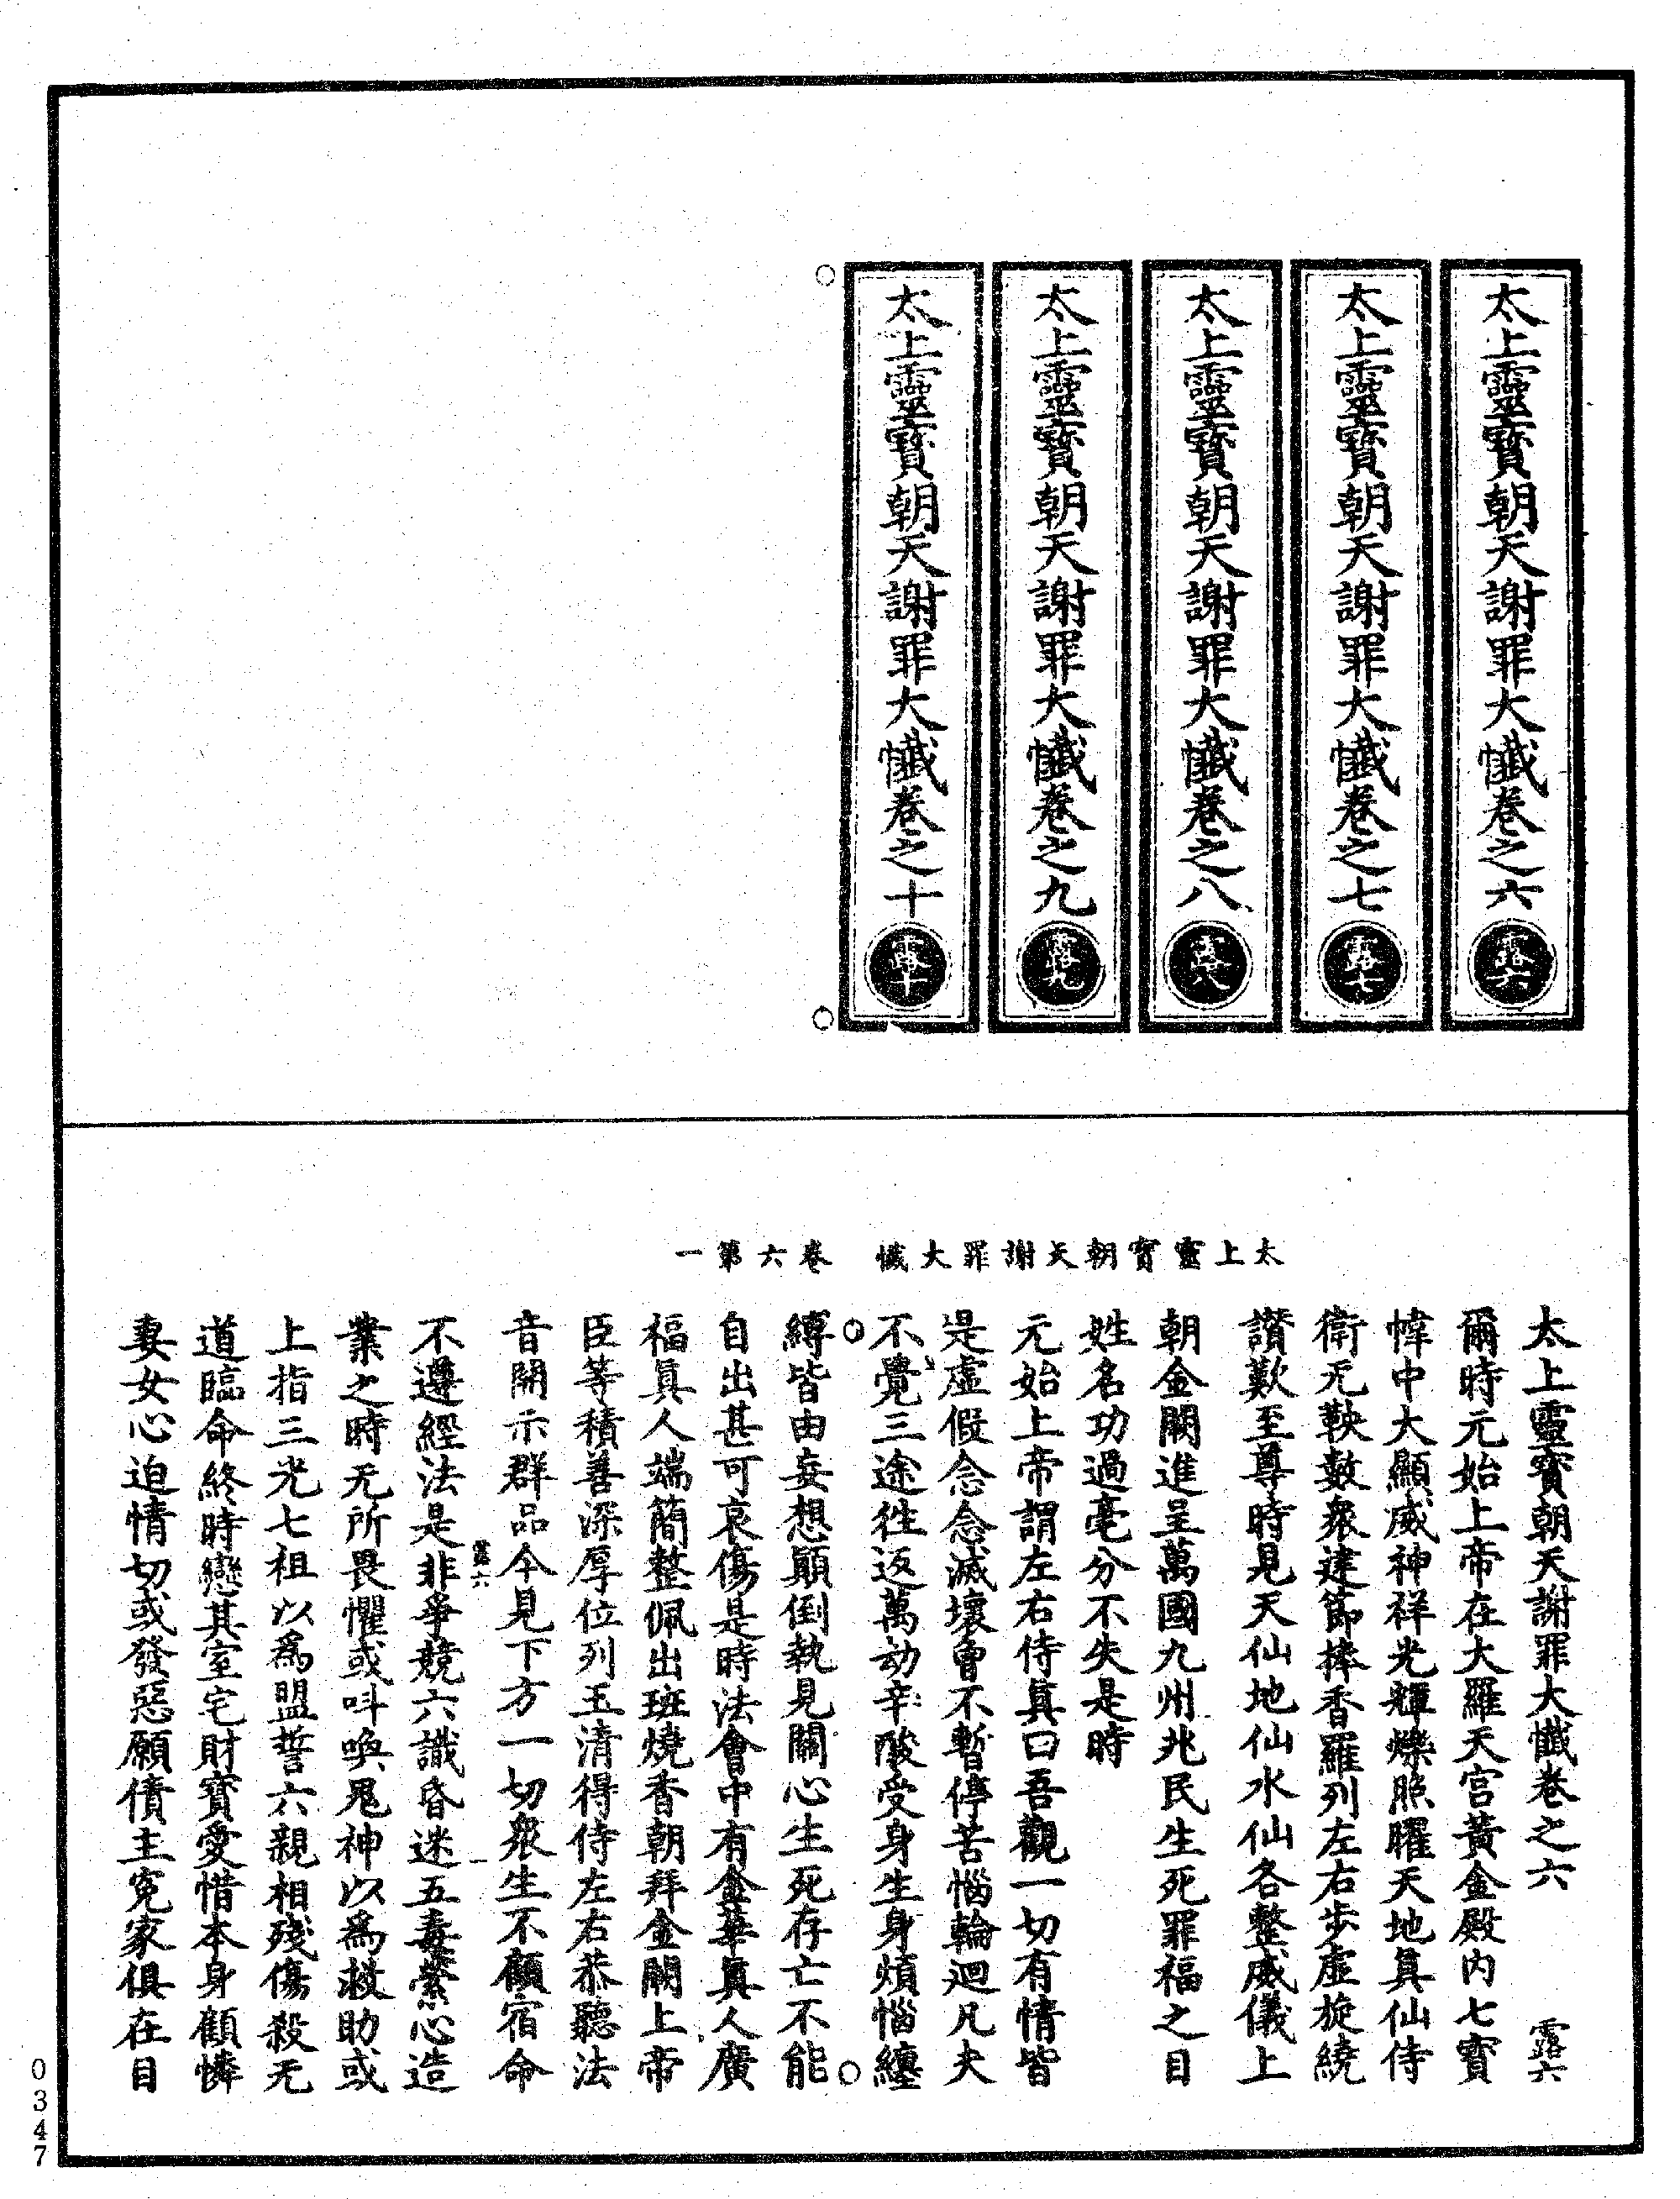 太上靈寶朝天謝罪大懺卷之六 露六
太上靈寶朝天謝罪大懺卷之七 露七
太上靈寶朝天謝罪大懺卷之八 露八
太上靈寶朝天謝罪大懺卷之九 露九
太上靈寶朝天謝罪大懺卷之十 露十
太上靈寶朝天謝罪大懺 卷六第一
太上靈寶朝天謝罪大懺卷之六 露六
爾時元始上帝在大羅天宫黃金殿内七寶
幃中大顯威神祥光輝爍照曜天地眞仙侍
衛无鞅數衆建節捧香羅列左右步虛旋繞
讚歎至尊時見天仙地仙水仙各整威儀上
朝金闕進呈萬國九州兆民生死罪福之目
姓名功過毫分不失是時
元始上帝謂左右侍眞曰吾觀一切有情皆
是虛假念念滅壞曾不暫停苦惱輪迴凡夫
不覺三途徃返萬劫辛酸受身生身煩惱纏
縛皆由妄想顚倒執見關心生死存亡不能
自出甚可哀傷是時法會中有金華眞人廣
福眞人端簡整佩出班燒香朝拜金闕上帝
臣等積善深厚位列玉清得侍左右恭聽法
音開示群品今見下方一切衆生不顧宿命
露六
不遵經法是非爭競六識昏迷五毒縈心造
業之時无所畏懼或呌喚鬼神以爲救助或
上指三光七祖以爲盟誓六親相殘傷殺无
道臨命終時戀其室宅財寶愛惜本身顧憐
妻女心迫情切或發惡願債主寃家俱在目
0347